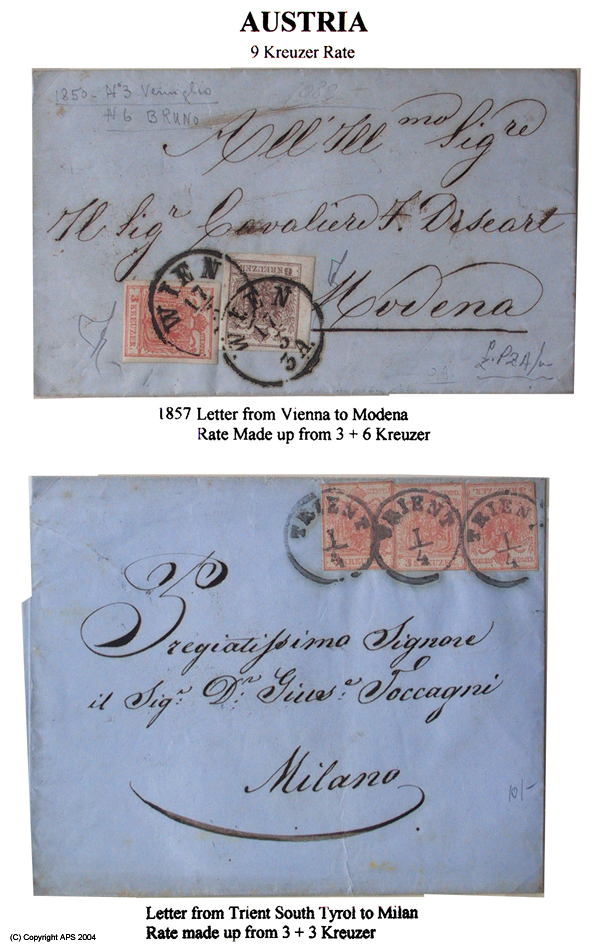 AUSTRIA
9 Kreuzer Rate
1850 - N°3 Vermiglio
N6 BRUNO
All'Ill mo Sig re
Il Sig r Cavaliere F. Descart
WIEN
17
3 KREUZER
WIEN
17
3
3A
6 KREUZER
Modena
1857 Letter from Vienna to Modena
Rate Made up from 3 + 6 Kreuzer
TRIENT
1/4
TRIENT
1/4
TRIENT
1/4
Pregiatissimo Signore
il Sig.r D.r Gius.e Toccagni
Milano
10/-
Letter from Trient South Tyrol to Milan
Rate made up from 3 + 3 Kreuzer
(C) Copyright APS 2004